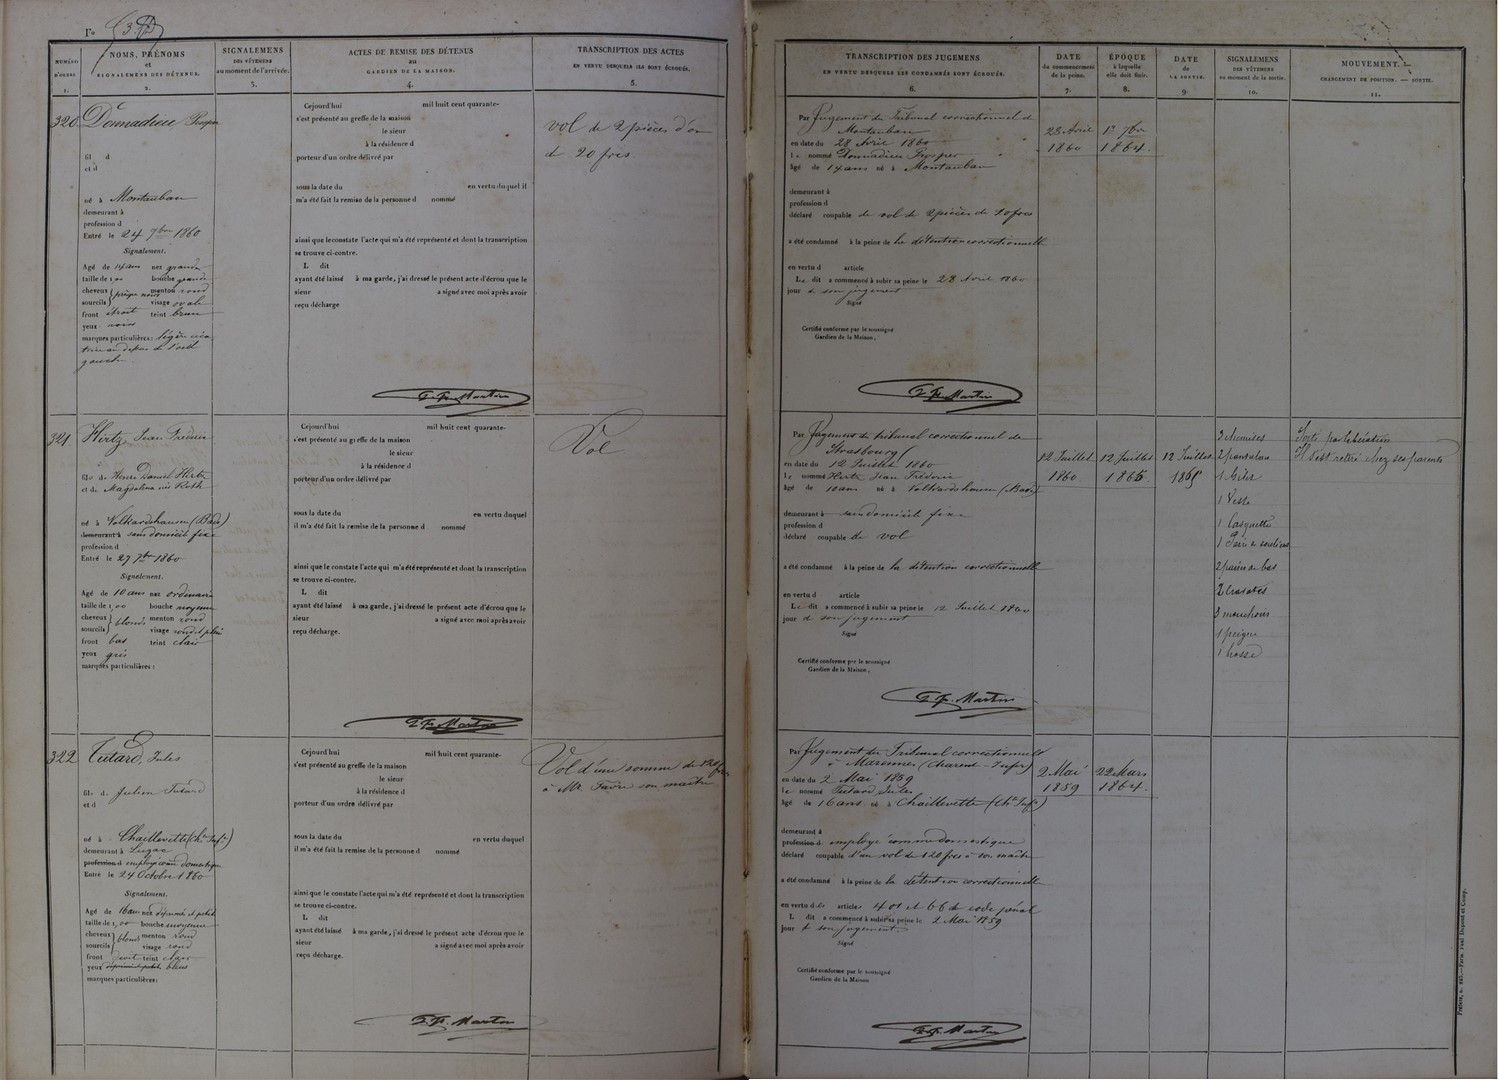 NUMÉRO
D'ORDRE
1.
NOMS, PRÉNOMS
et
SIGNALEMENS DES DÉTENUS.
2.
SIGNALEMENS
DES VÊTEMENS
au moment de l'arrivée.
3.
ACTES DE REMISE DES DÉTENUS
au
GARDIEN DE LA MAISON.
4.
TRANSCRIPTION DES ACTES
EN VERTU DESQUELS ILS SONT ÉCROUÉS.
5.
TRANSCRIPTION DES JUGEMENS
EN VERTU DESQUELS LES CONDAMNÉS SONT ÉCROUÉS.
6.
DATE
du commencement
de la peine.
7.
ÉPOQUE
à laquelle
elle doit finir.
8.
DATE
de
LA SORTIE.
9.
SIGNALEMENS
DES VÊTEMENS
au moment de la sortie.
10.
MOUVEMENT.
CHANGEMENT DE POSITION. — SORTIE.
11.
320
Donnadieu Prosper
fil d
et d
né à Montauban
demeurant à
profession d
Entré le 24 7bre 1860
Signalement.
Agé de 14 ans nez grand
taille de 1 bouche grande
cheveux menton rond
sourcils presque noirs visage ovale
front étroit teint brun
yeux noirs
marques particulières: légère cica
trice au dessus de l'œil
gauche
Cejourd'hui mil huit cent quarante-
s'est présenté au greffe de la maison
le sieur
à la résidence d
porteur d'un ordre délivré par
sous la date du en vertu duquel il
m'a été fait la remise de la personne d nommé
ainsi que le constate l'acte qui m'a été représenté et dont la transcription
se trouve ci-contre.
L dit
ayant été laissé à ma garde, j'ai dressé le présent acte d'écrou que le
sieur a signé avec moi après avoir
reçu décharge
Martin
vol de 2 pièces d'or
de 20 frcs
Par Jugement du Tribunal correctionnel de
Montauban
en date du 28 Avril 1860
le nommé Donnadieu Prosper
âgé de 14 ans né à Montauban
demeurant à
profession d
déclaré coupable de vol de 2 pièces de 20 frcs
a été condamné à la peine de la détention correctionnelle
en vertu d article
Le dit a commencé à subir sa peine le 28 Avril 1860
jour de son jugement
Signé
Certifié conforme par le soussigné
Gardien de la Maison,
Martin
28 Avril
1860
1er 7bre
1864.
321
Hirtz Jean Frédéric
fils de Henri Daniel Hirtz
et de Magdalena née Roth
né à Volkardshausen (Bade)
demeurant à sans domicile fixe
profession d
Entré le 27 7bre 1860
Signalement.
Agé de 10 ans nez ordinaire
taille de 1, 00 bouche moyenne
cheveux menton rond
sourcils blonds visage rond et plein
front bas teint clair
yeux gris
marques particulières:
Cejourd'hui mil huit cent quarante-
s'est présenté au greffe de la maison
le sieur
à la résidence d
porteur d'un ordre délivré par
sous la date du en vertu duquel
il m'a été fait la remise de la personne d nommé
ainsi que le constate l'acte qui m'a été représenté et dont la transcription
se trouve ci-contre.
L dit
ayant été laissé à ma garde, j'ai dressé le présent acte d'écrou que le
sieur a signé avec moi après avoir
reçu décharge.
Martin
Vol
Par Jugement du tribunal correctionnel de
Strasbourg
en date du 12 Juillet 1860
le nommé Hirtz Jean Frédéric
âgé de 10 ans né à Volkardshausen (Bade)
demeurant à sans domicile fixe
profession d
déclaré coupable de vol
a été condamné à la peine de la détention correctionnelle
en vertu d article
Le dit a commencé à subir sa peine le 12 Juillet 1860
jour de son jugement
Signé
Certifié conforme par le soussigné
Gardien de la Maison,
Martin
12 Juillet
1860
12 Juillet
1865
12 Juillet
1865
3 chemises
2 pantalon
1 Gilet
1 Veste
1 Casquette
1 Paire de souliers
2 paires de bas
2 cravates
3 mouchoirs
1 peigne
1 brosse
Sorti par libération
Il s'est retiré chez ses parents
322
Tutard, Jules
fils de Julien Tutard
et d
né à Chaillevette (Ch. Infre)
demeurant à Luzac
profession d employé comme domestique
Entré le 24 Octobre 1860
Signalement.
Agé de 16 ans nez déprimé et petit
taille de 1, 00 bouche moyenne
cheveux menton rond
sourcils blonds visage rond
front droit teint clair
yeux bleus
marques particulières:
Cejourd'hui mil huit cent quarante-
s'est présenté au greffe de la maison
le sieur
à la résidence d
porteur d'un ordre délivré par
sous la date du en vertu duquel
il m'a été fait la remise de la personne d nommé
ainsi que le constate l'acte qui m'a été représenté et dont la transcription
se trouve ci-contre.
L dit
ayant été laissé à ma garde, j'ai dressé le présent acte d'écrou que le
sieur a signé avec moi après avoir
reçu décharge.
Martin
Vol d'une somme de 120 frcs
à Mr. Favre son maître
Par Jugement du Tribunal correctionnel
de Marennes (Charent-Infre)
en date du 2 Mai 1859
le nommé Tutard Jules
âgé de 16 ans né à Chaillevette (Ch. Infre)
demeurant à
profession d employé comme domestique
déclaré coupable d'un vol de 120 frcs à son maître
a été condamné à la peine de la détention correctionnelle
en vertu des articles 401 et 66 du code pénal
L dit a commencé à subir sa peine le 2 Mai 1859
jour de son jugement.
Signé
Certifié conforme par le soussigné
Gardien de la Maison
Martin
2 Mai
1859
22 Mars
1864.